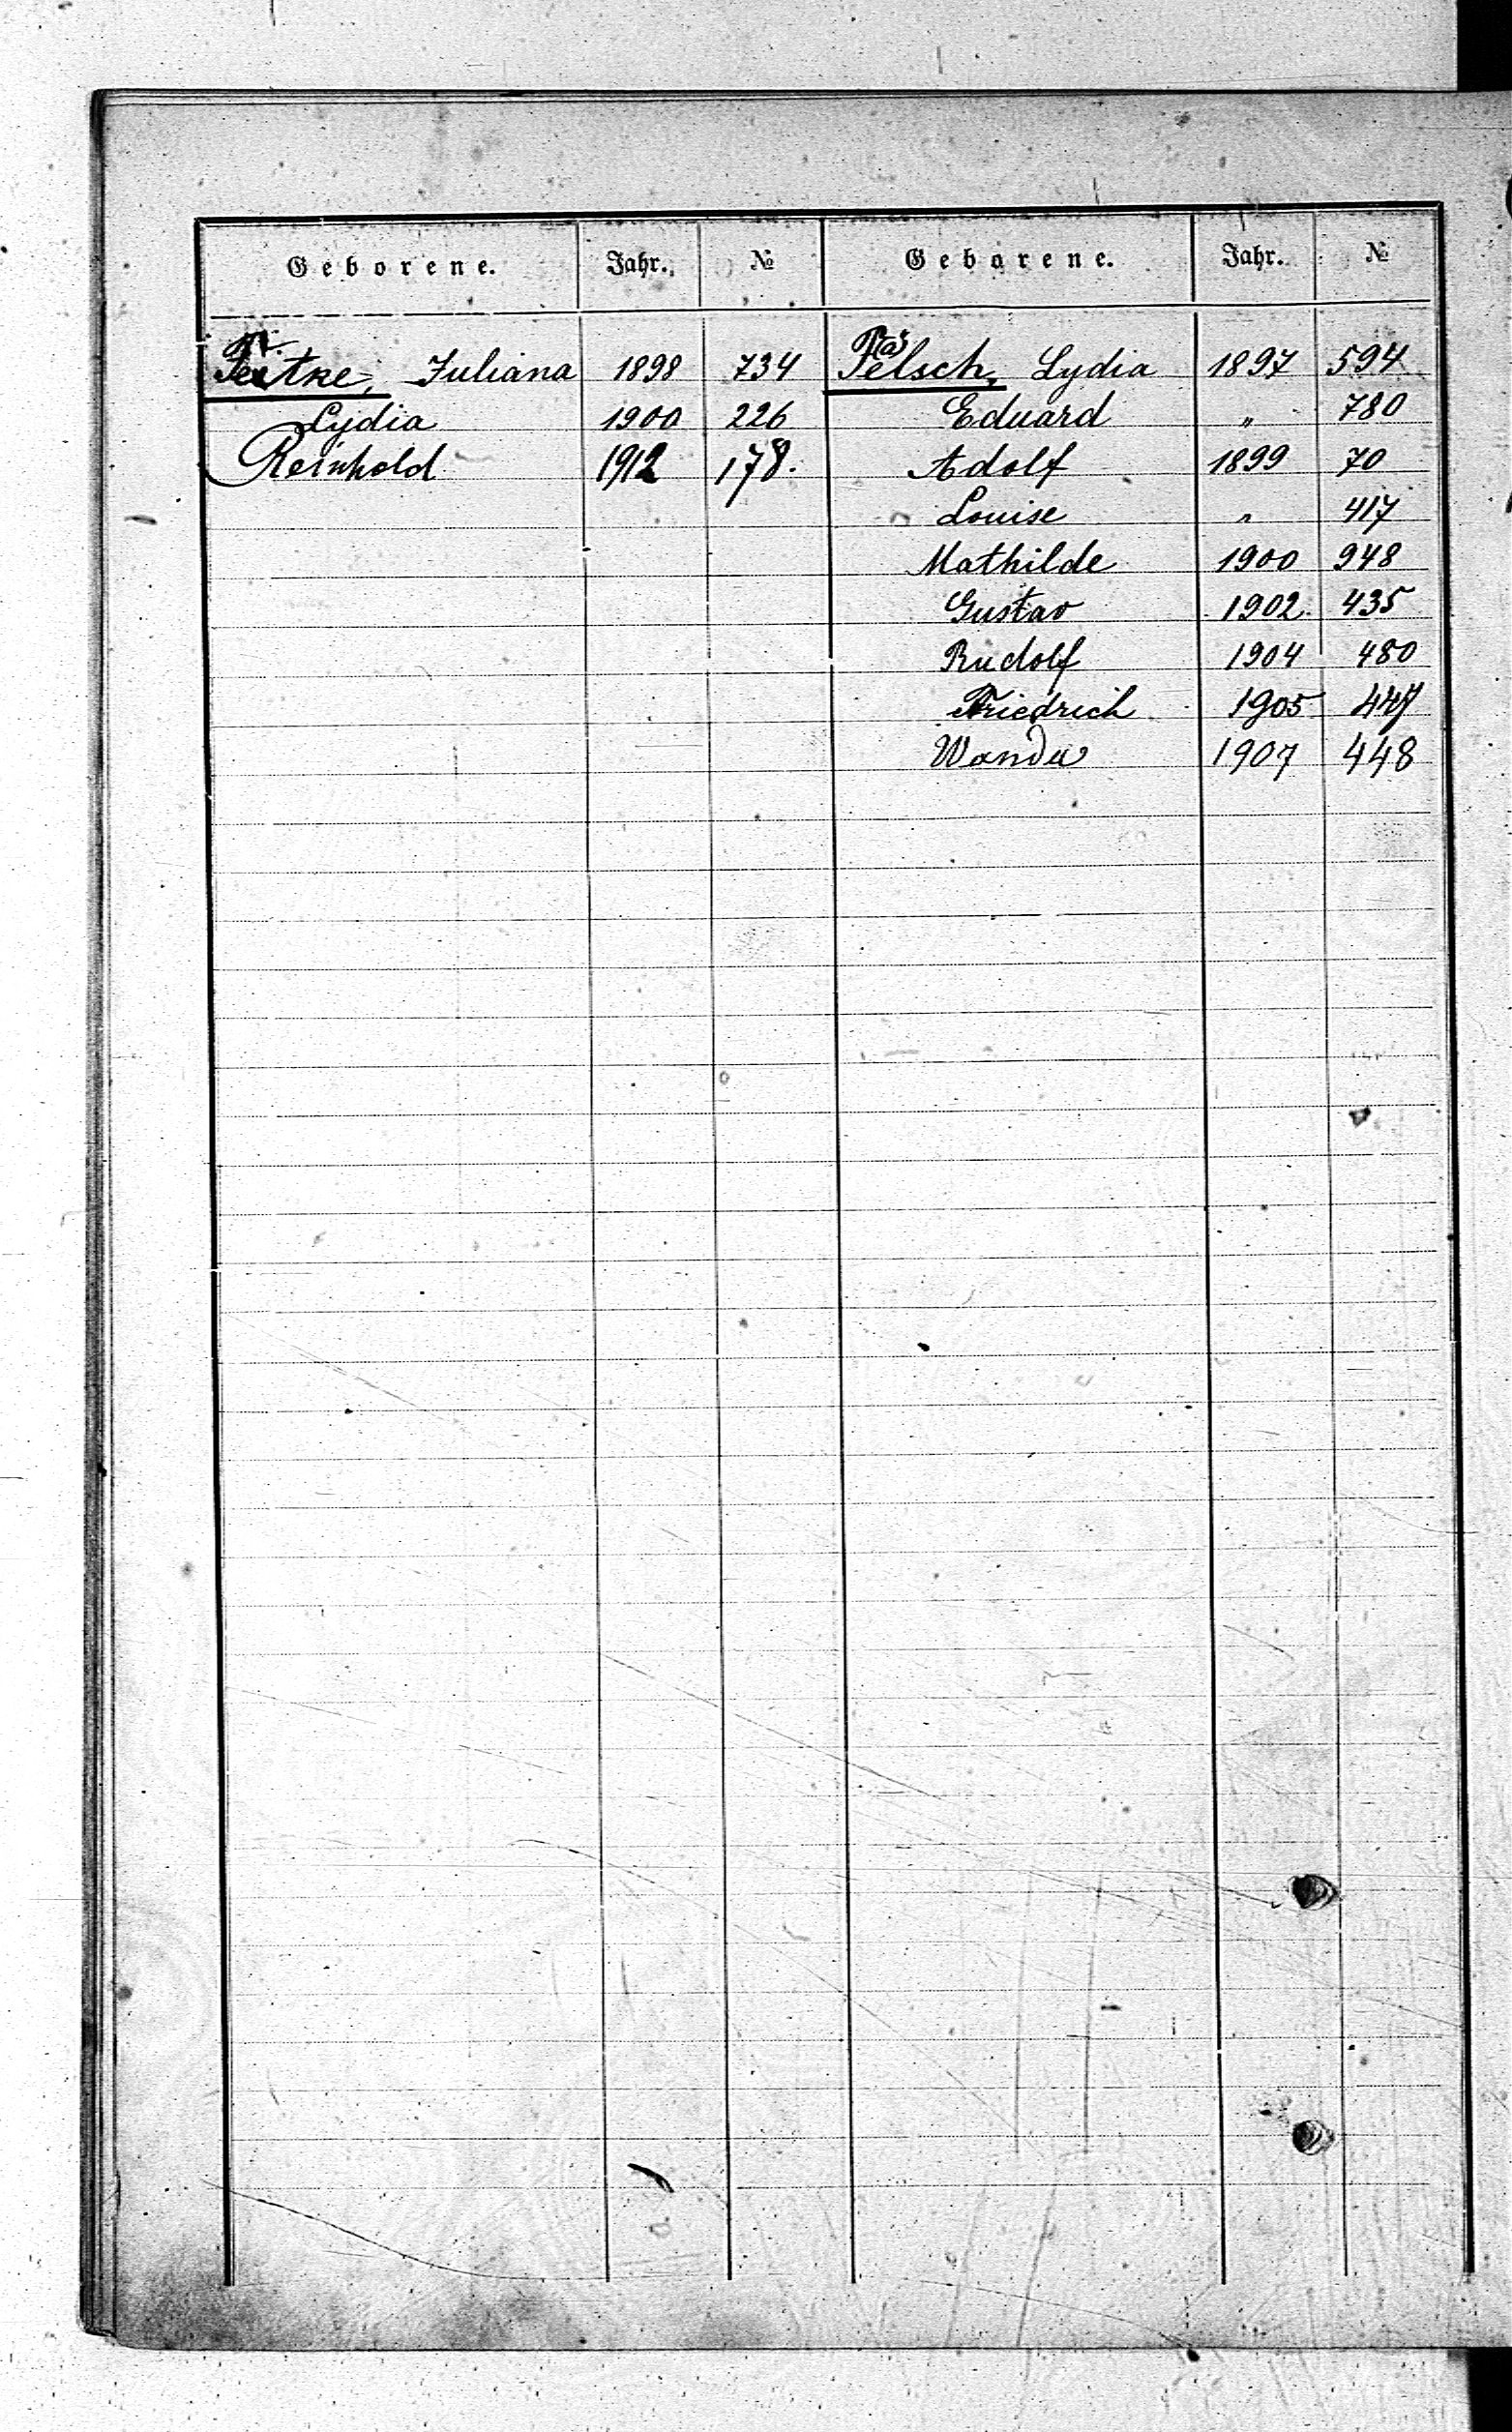 Geborene. Jahr. № Geborene. Jahr. №
Juliana 1898 734 Pelsch, Lydia 1897 594
Lydia 1900 226 Eduard " 780
Reinhold 1912 178. Adolf 1899 70
Louise " 417
Mathilde 1900 948
Gustav 1902 435
Rudolf 1904 480
Friedrich 1905 447
Wanda 1907 448